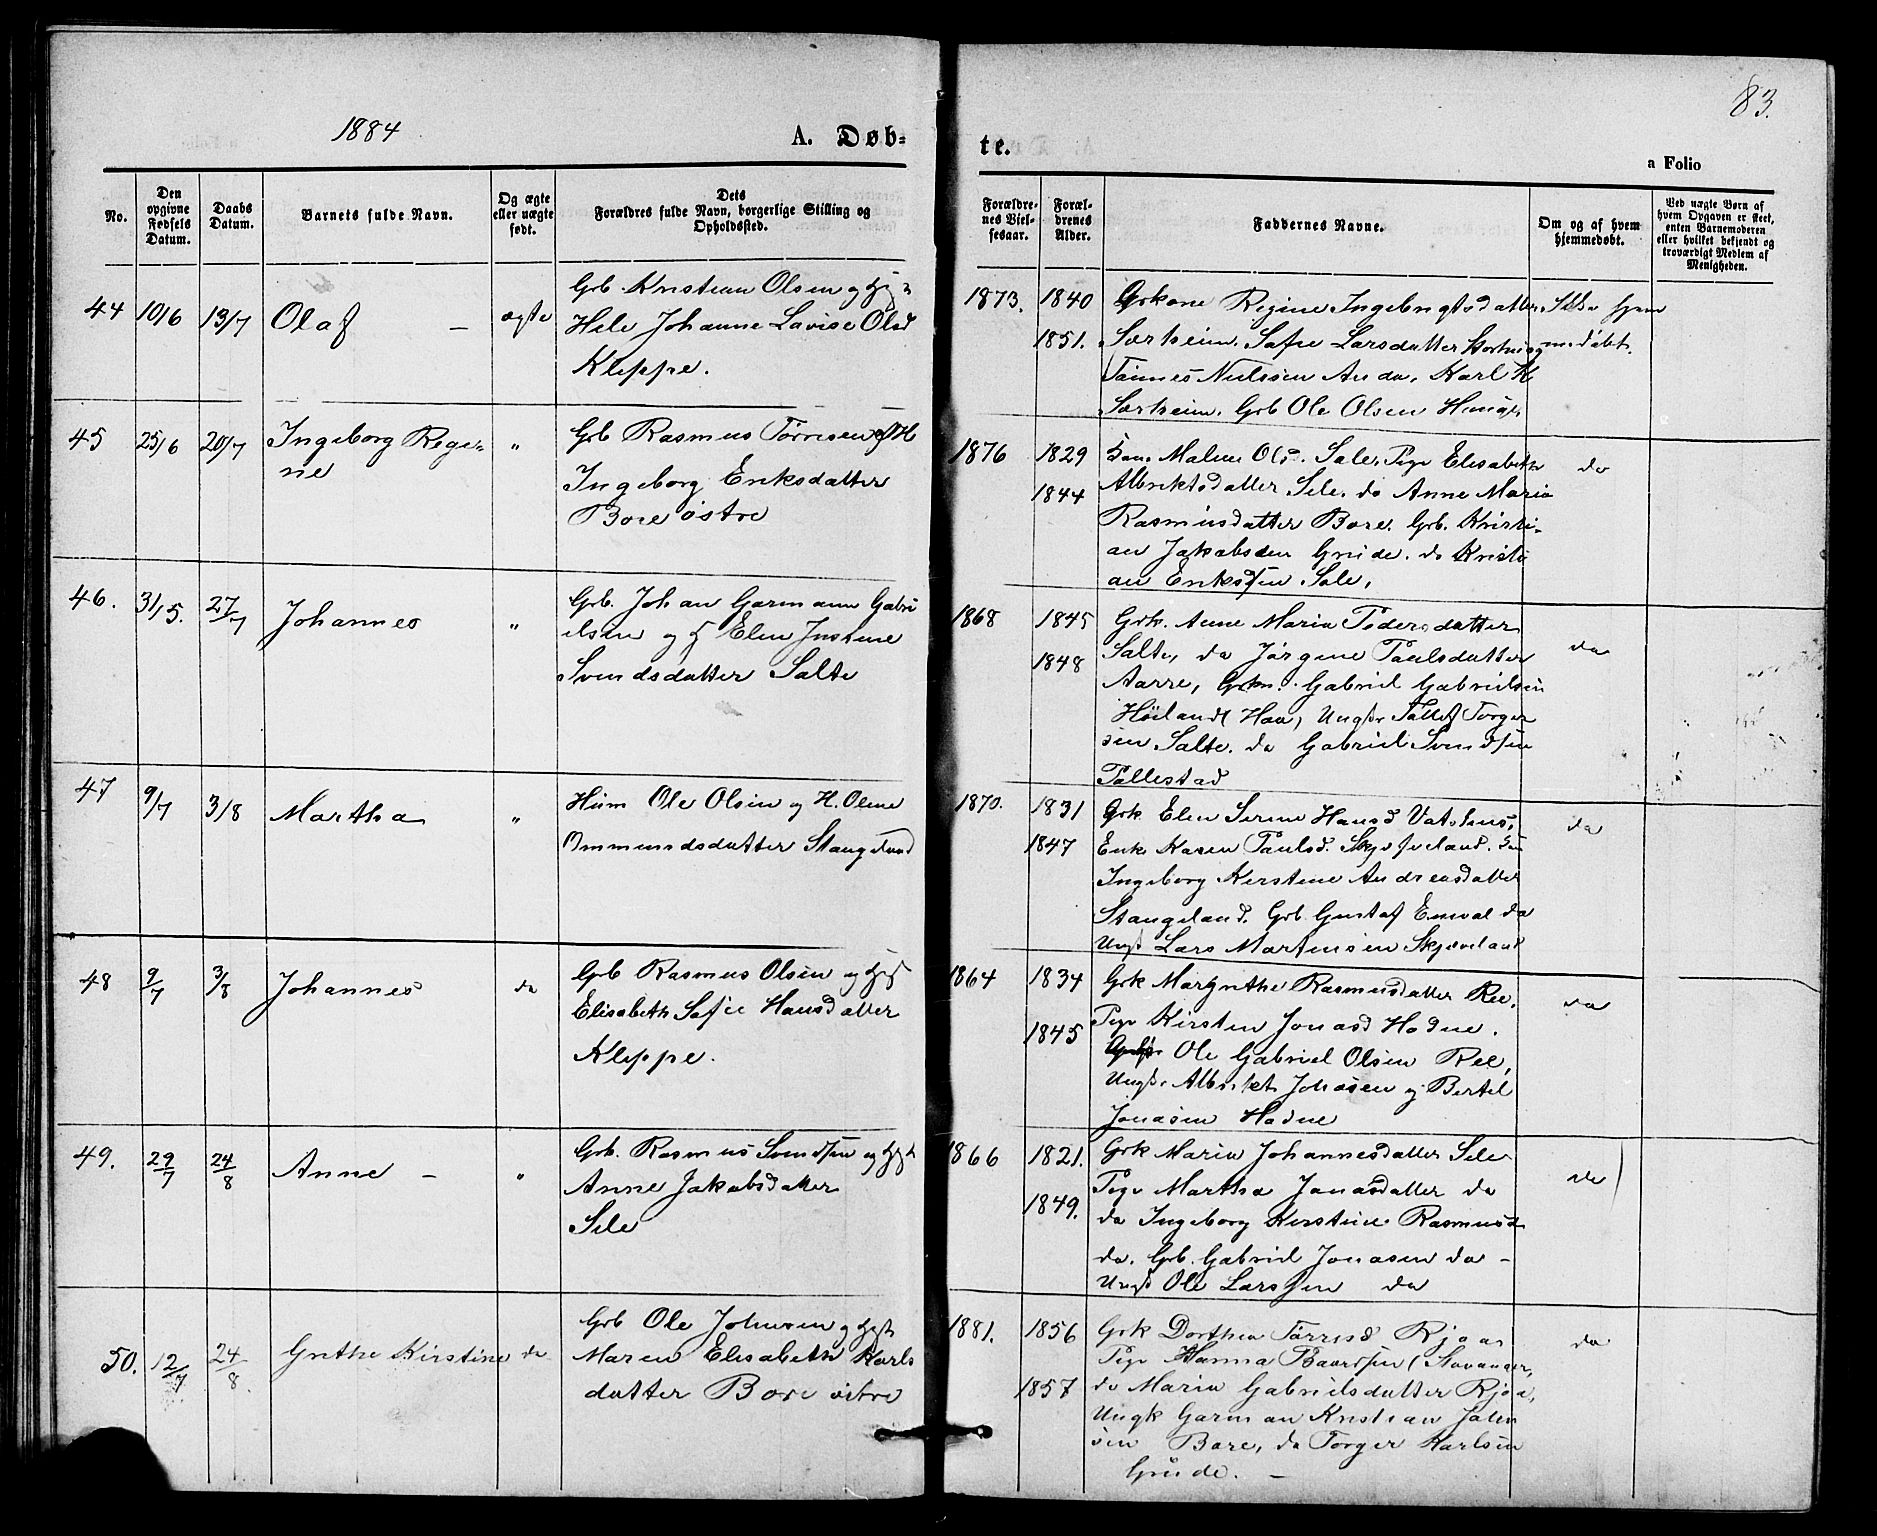 83.
1884
A. Døb-
te.
a Folio
No.
Den opgivne Fødsels Datum.
Daabs Datum.
Barnets fulde Navn.
Og ægte eller uægte født.
Dets Forældres fulde Navn, borgerlige Stilling og Opholdssted.
Forældrenes Vielsesaar.
Forældrenes Alder.
Faddernes Navne.
Om og af hvem hjemmedøbt.
Ved uægte Børn af hvem Opgaven er skeet, enten Barnemoderen eller hvilket bekjendt og troværdigt Medlem af Menigheden.
44 10/6 13/7 Olaf – ægte
Grb Kristian Olsen og
Hele Johanne Lovise Olsd
Kleppe.
1873. 1840
1851.
Grkone Regine Ingebrigtsdatter
Sørheim. Sofie Larsdatter
Tønnes Nielsen Anda, Karl
Sørheim. Grb Ole Olsen
45 25/6 20/7 Ingeborg Regi-
ne "
Grb Rasmus Tørresen
Ingeborg Eriksdatter
Bore østre
1876 1829
1844
Malene Sele, Pige Elisabeth
Albrektsdatter Sele. do Anne Maria
Rasmusdatter Bore. Grb. Kristi-
an Jakobsen Grude. do Kristi
an Eriksen Sele,
do
46. 31/5. 27/7 Johannes "
Grb. Johan Garmann Gabri
elsen og Elen Justine
Svendsdatter Salte
1868 1845
1848
Grk. Anne Maria Pedersdatter
Salte, do Jørgine Paulsdatter
Aarre, Gabriel Gabrielsen
Høiland Haa, Ungk Tollef Torger
sen Salte. do Gabriel Svendsen
Pollestad
do
47 9/7 3/8 Martha "
Huusm Ole Olsen og H. Oline
Ommundsdatter Stangeland
1870. 1831
1847
Grk Elen Serine Hansd Vatshus,
Enke Karen Paulsd. Skjæveland.
Ingeborg Kirstine Andreasdatter
Stangeland. Grb Gustaf Enval do
Ungk Lars Martinsen Skjæveland
do
48 9/7 3/8 Johannes do
Grb Rasmus Olsen og
Elisabeth Sofie Hansdatter
Kleppe.
1864 1834
1845
Grk Margrethe Rasmusdatter Ree,
Pige Kirsten Jonasd Hodne.
Ole Gabriel Olsen Ree,
Ungk. Albrikt Jonasen og Bertel
Jonasen Hodne
do
49. 29/7 24/8 Anne – "
Grb. Rasmus Svendsen og
Anne Jakobsdatter
Sele
1866 1821.
1849.
Grk Maria Johannesdatter Sele
Pige Martha Jonasdatter do
do Ingeborg Kirstine Rasmusd
do. Grb. Gabriel Jonasen do –
Ungk Ole Larssen do
do
50. 12/7 24/8 Grethe Kirstine do
Grb Ole Johnsen og
Maren Elisabeth Karls
datter Bore østre
1881. 1856
1857
Grk Dorthea Tørresd
Pige Hanna Baardsen Stavanger,
do Maria Gabrielsdatter
Ungk Garman Kristian John
sen Bore, do Torger Karlsen
Grude. –
do